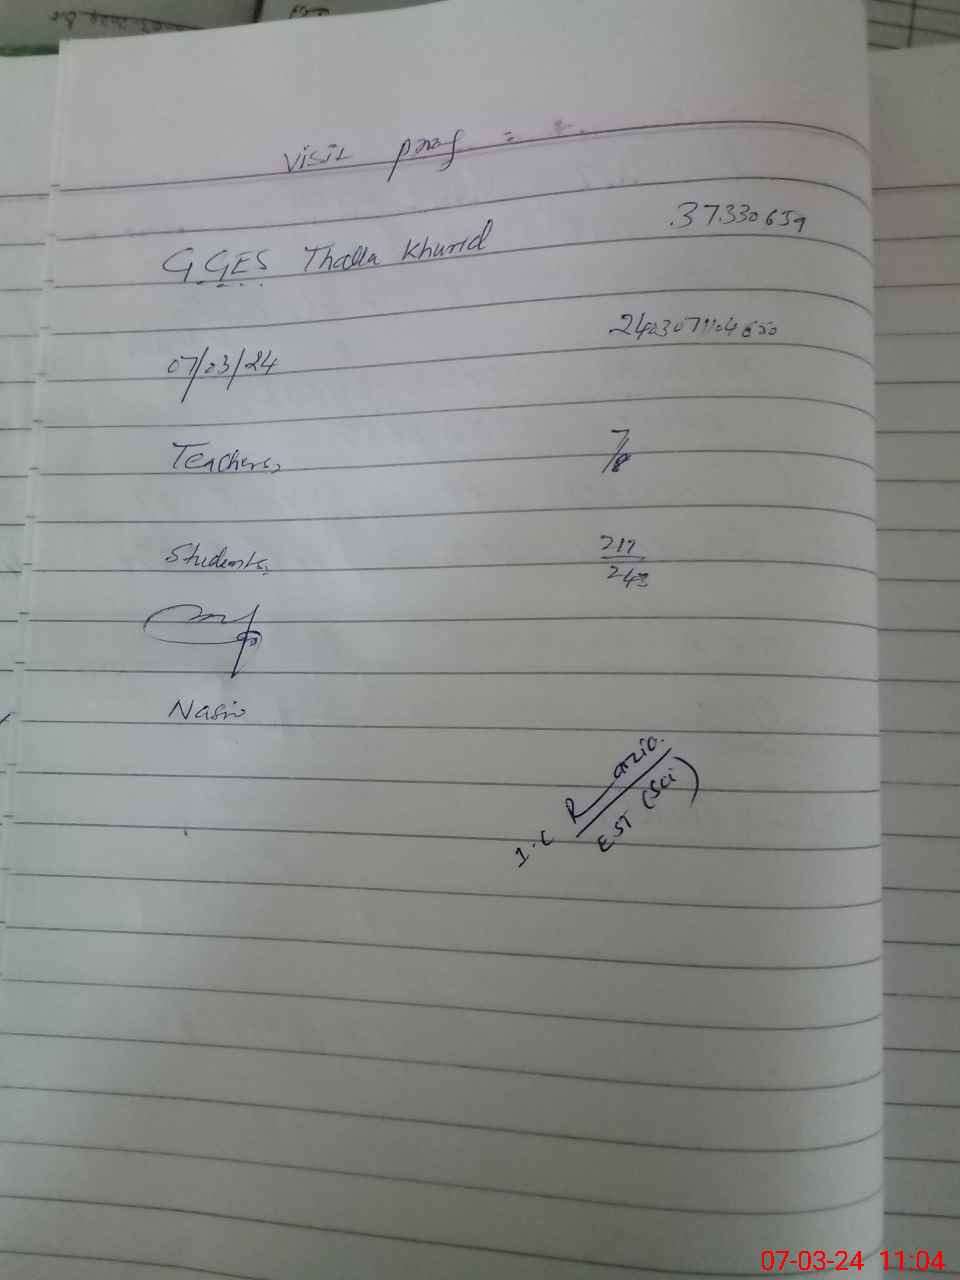 Visit proof =
G.GES Thalla Khurd 37330659
07/03/24 2403071104650
Teachers, 7/8
Students, 217/243
Nasir
I.C Razia.
EST (Sci)
07-03-24 11:04